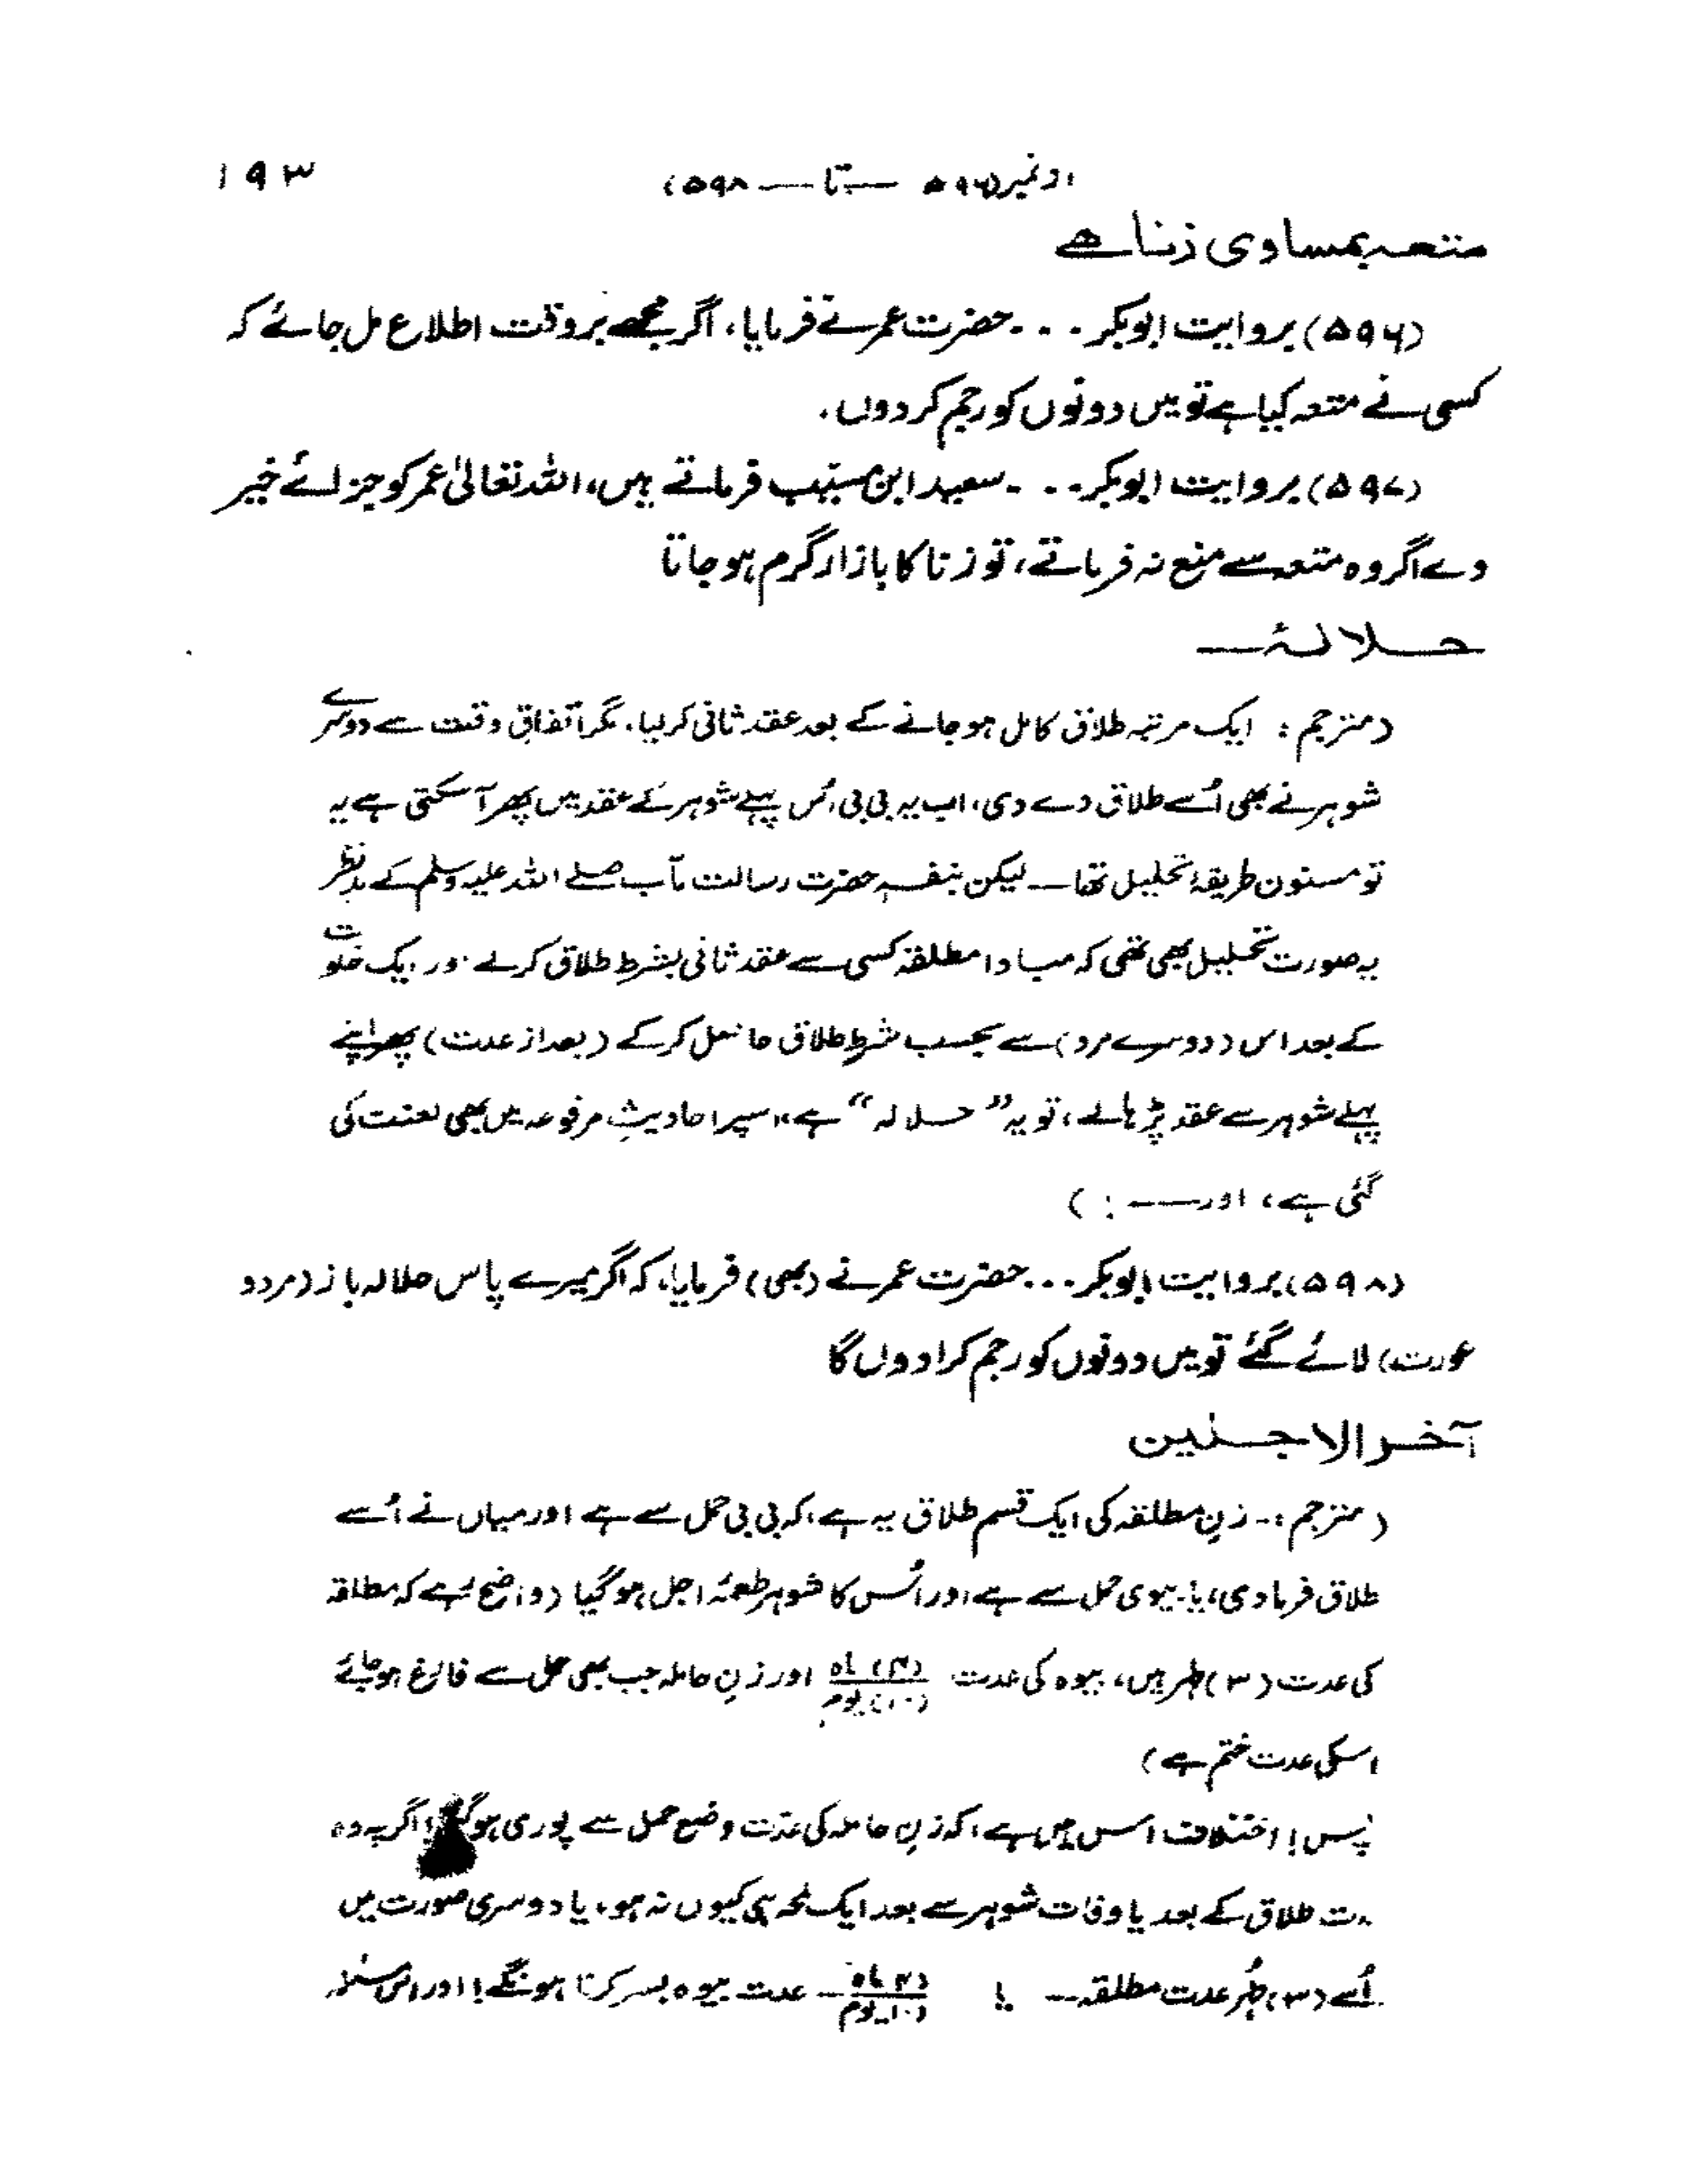 از نمبر (۵۹۶ — تا — ۵۹۸) ۱۹۳
متعہ بمساوی زنا ھے
(۵۹۶) بروایت ابوبکر ... حضرت عمر نے فرمایا، اگر مجھے بروقت اطلاع مل جائے کہ
کسی نے متعہ کیا ہے تو میں دونوں کو رجم کر دوں۔
(۵۹۷) بروایت ابوبکر ... سعید ابن مسیّب فرماتے ہیں، اللہ تعالیٰ عمر کو جزائے خیر
دے اگر وہ متعہ سے منع نہ فرماتے، تو زنا کا بازار گرم ہو جاتا
حلالہ
(مترجم : ایک مرتبہ طلاق کامل ہو جانے کے بعد عقد ثانی کر لیا، مگر اتفاق وقت سے دوسرے
شوہر نے بھی اُسے طلاق دے دی، اب یہ بی بی اس پہلے شوہر کے عقد میں پھر آ سکتی ہے یہ
تو مسنون طریقۂ تحلیل تھا — لیکن بنفسہٖ حضرت رسالت مآب صلے اللہ علیہ وسلم کے مد نظر
یہ صورت تحلیل بھی تھی کہ مبادا مطلقہ کسی سے عقد ثانی بشرط طلاق کرلے اور ایک خلوت
کے بعد اس (دوسرے مرد) سے بحسب شرط طلاق حاصل کر کے (بعد از عدت) پھر اپنے
پہلے شوہر سے عقد پڑھا لے، تو یہ “حلالہ” ہے، اسپر احادیثِ مرفوعہ میں بھی لعنت کی
گئی ہے، اور —— : )
(۵۹۸) بروایت ابوبکر ... حضرت عمر نے (بھی) فرمایا، کہ اگر میرے پاس حلالہ باز (مرد و
عورت) لائے گئے تو میں دونوں کو رجم کرا دوں گا
آخر الاجلین
(مترجم :- زنِ مطلقہ کی ایک قسم طلاق یہ ہے، کہ بی بی حمل سے ہے اور میاں نے اُسے
طلاق فرما دی، یا۔ بیوی حمل سے ہے اور اُس کا شوہر طعمۂ اجل ہو گیا (واضح رہے کہ مطلقہ
کی عدت (۳) طہر ہیں، بیوہ کی عدت (۴) ماہ (۱۰) یوم اور زنِ حاملہ جب بھی حمل سے فارغ ہو جائے
اسکی عدت ختم ہے)
پس! اختلاف اس میں ہے، کہ زنِ حاملہ کی عدّت وضع حمل سے پوری ہو اگر یہ وہ
مدت طلاق کے بعد یا وفات شوہر سے بعد ایک لمحہ ہی کیوں نہ ہو، یا دوسری صورت میں
اُسے (۳) طُہر عدت مطلقہ — یا (۴) ماہ (۱۰) یوم — عدت بیوہ بسر کرنا ہونگے! اور اس مسئلہ